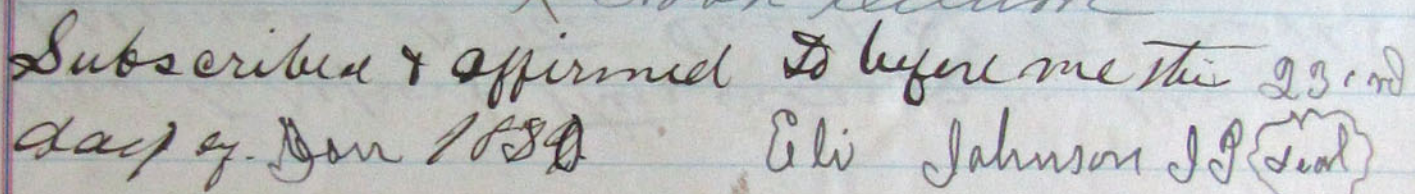 Subscribed & affirmed to before me this 23rd
day of Jan 1880 Eli Johnson JP Seal